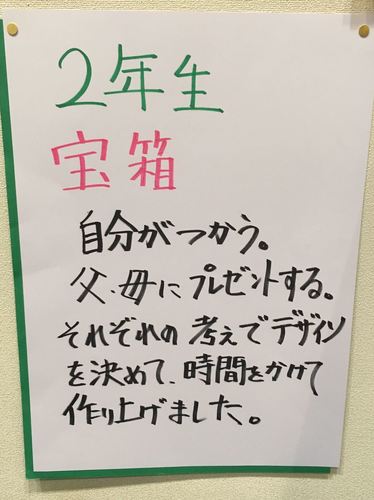 2年生
宝箱
自分がつかう。
父、母にプレゼントする。
それぞれの考えでデザイン
を決めて、時間をかけて
作り上げました。